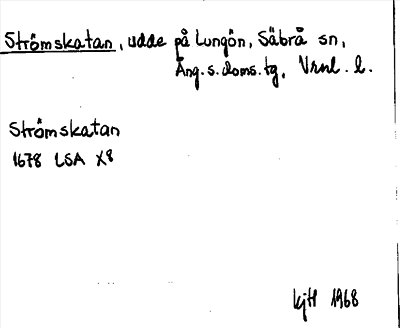 Strömskatan, udde på Lungön, Säbrå sn,
Ång.s.doms.tg, Vrnl. l.
Strömskatan
1678 LSA X8
kjH 1968